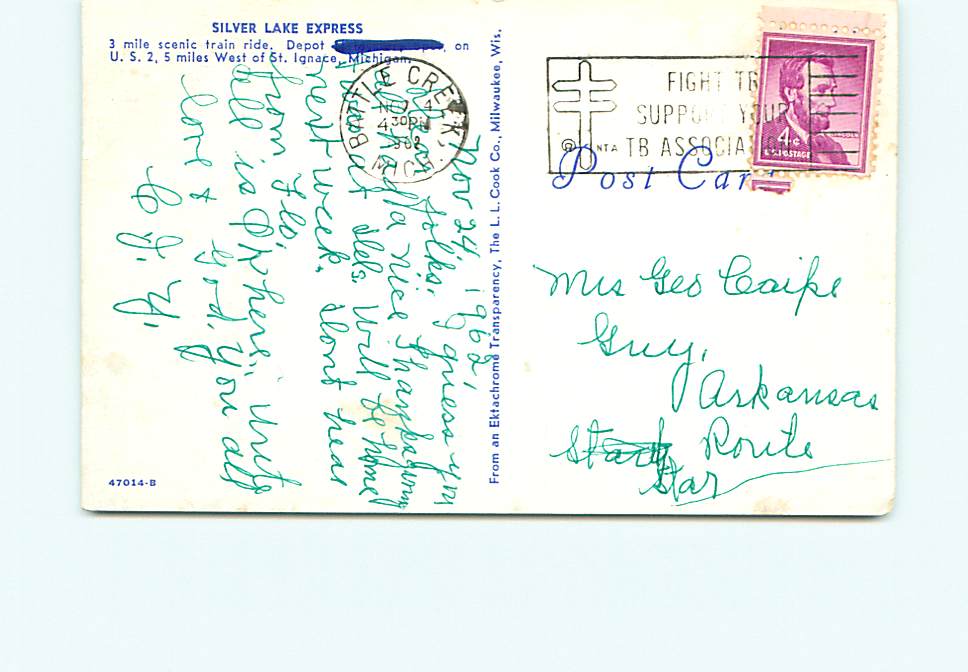 SILVER LAKE EXPRESS
3 mile scenic train ride. Depot on
U. S. 2, 5 miles West of St. Ignace, Michigan.
Nov 24, 1962
folks; guess y
all had a nice Thanksgiving
will be home
next week. dont hear
from Flo.
all is OK here. Write
you all
love &
47014-B
From an Ektachrome Transparency, The L. L. Cook Co., Milwaukee, Wis.
BATTLE CREEK
NOV 4
4 30 PM
1962
MICH.
FIGHT TB
SUPPORT YOUR
TB ASSOCIATION
© NTA
4¢
U.S. POSTAGE
Post Card
Mrs Geo Caife
Guy,
Arkansas
Route
Star